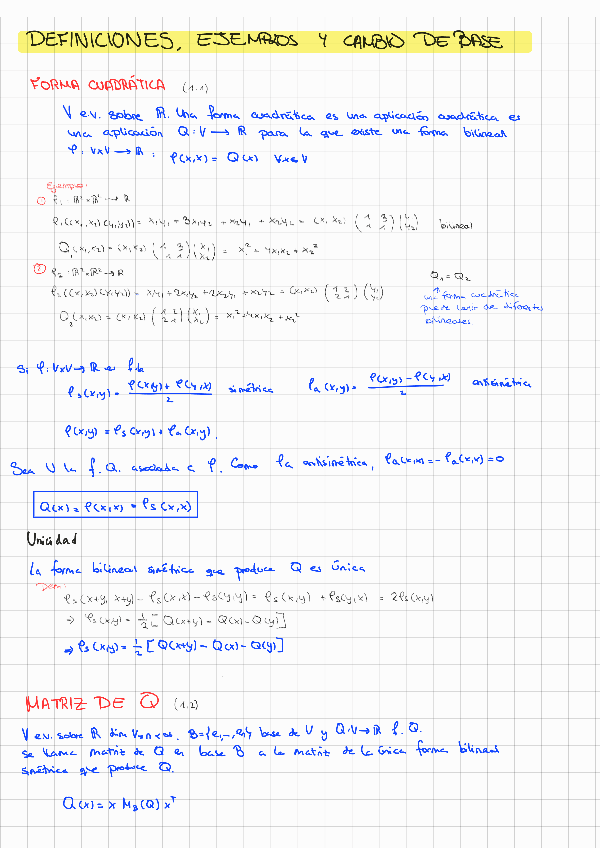 DEFINICIONES, EJEMPLOS Y CAMBIO DE BASE
FORMA CUADRÁTICA (1.1)
V e.v. sobre ℝ. Una forma cuadrática es una aplicación cuadrática es
una aplicación Q: V → ℝ para la que existe una forma bilineal
φ: V×V → ℝ : φ(x,x) = Q(x) ∀x∈V
Ejemplo:
① φ₁: ℝ²×ℝ² → ℝ
φ₁((x₁,x₂)(y₁,y₂)) = x₁y₁ + 3x₁y₂ + x₂y₁ + x₂y₂ = (x₁ x₂) (1 3; 1 1) (y₁; y₂) bilineal
Q₁(x₁,x₂) = (x₁ x₂) (1 3; 1 1) (x₁; x₂) = x₁² + 4x₁x₂ + x₂²
② φ₂: ℝ²×ℝ² → ℝ
Q₁ = Q₂
φ₂((x₁,x₂)(y₁,y₂)) = x₁y₁ + 2x₁y₂ + 2x₂y₁ + x₂y₂ = (x₁ x₂) (1 2; 2 1) (y₁; y₂)
↑
una forma cuadrática
puede venir de diferentes
bilineales
Q₂(x₁,x₂) = (x₁ x₂) (1 2; 2 1) (x₁; x₂) = x₁² + 4x₁x₂ + x₂²
Si φ: V×V → ℝ es f.b.
φₛ(x,y) = (φ(x,y) + φ(y,x))/2 simétrica φₐ(x,y) = (φ(x,y) − φ(y,x))/2 antisimétrica
φ(x,y) = φₛ(x,y) + φₐ(x,y).
Sea U la f. Q. asociada a φ. Como φₐ antisimétrica, φₐ(x,x) = −φₐ(x,x) = 0
Q(x) = φ(x,x) = φₛ(x,x)
Unicidad
La forma bilineal simétrica que produce Q es única
Dem:
φₛ(x+y, x+y) − φₛ(x,x) − φₛ(y,y) = φₛ(x,y) + φₛ(y,x) = 2φₛ(x,y)
⇒ φₛ(x,y) = ½[Q(x+y) − Q(x) − Q(y)]
⇒ φₛ(x,y) = ½[Q(x+y) − Q(x) − Q(y)]
MATRIZ DE Q (1.2)
V e.v. sobre ℝ dim V=n<∞. B={e₁,–,eₙ} base de V y Q: V→ℝ f. Q.
se llama matriz de Q en base B a la matriz de la única forma bilineal
simétrica que produce Q.
Q(x) = x M_B(Q) xᵀ